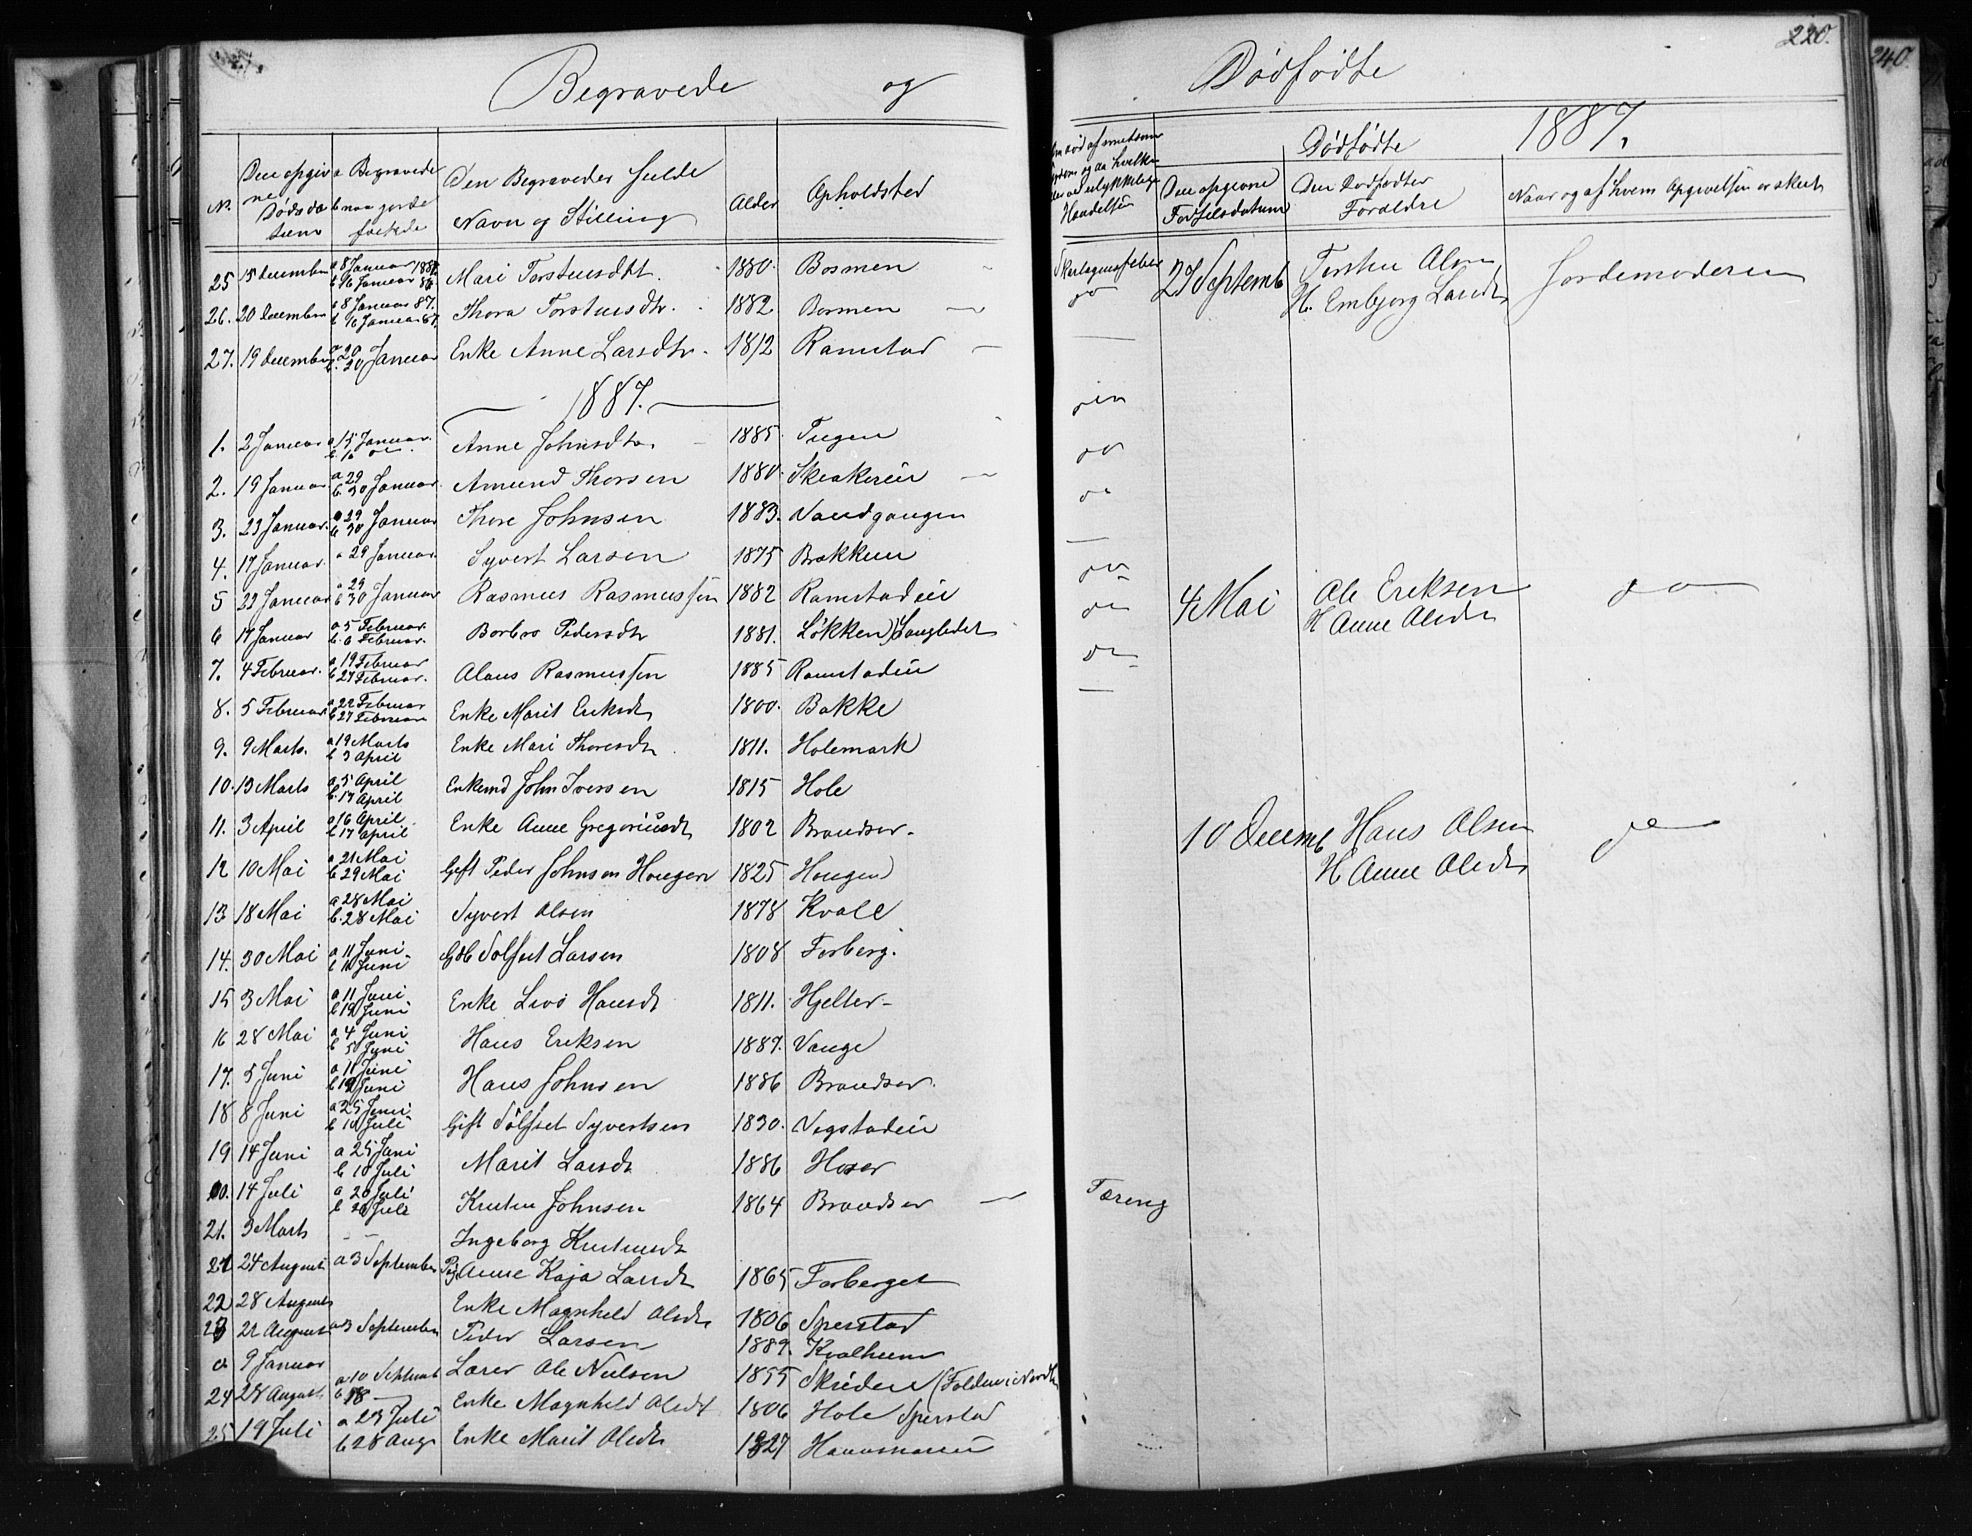 220.
240.
Begravede og Dødfødte
1887.
N.
Den opgivne Dødsdatum
a Begravede
b naar jordfæstede
Den Begravedes fulde
Navn og Stilling
Alder
Opholdsted
Dødfødte
Den opgivne
Fødselsdatum
Den Dødfødtes
Forældre
Naar og af hvem Opgivelsen er skeet
25 15 December a 8 Januar 1887 b 16 Januar 87 Mari Torstensdtr. 1880. Bosmen Skarlagensfeber
26. 20 December a 8 Januar 87. b 16 Januar 87. Thora Torstensdtr. 1882 Bosmen do
27 Septemb Torsten Olsen
H. Embjorg Larsdtr Jordemoderen
27. 19 December a 20 b. 20 Januar Enke Anne Larsdtr. 1812 Ramstad —
1887.
1. 2 Januar a 15 Januar. b. 16 do. Anne Johnsdtr. 1885. Teigen
2. 19 Januar a 29 b. 30 Januar. Amund Thorsen 1880. Skeakereie do
3. 23 Januar. a 29 b 30 Januar Thore Johnsen 1883. Vandgangen do
4. 17 Januar. a 29 Januar. Syvert Larsen 1875 Bakken —
5 23 Januar a 29 b 30 Januar Rasmus Rasmussen 1882 Ramstadeie do
4 Mai Ole Eriksen
H Anne Olsdtr do
6 17 Januar a 5 Februar. b. 6 Februar. Barbro Pedersdtr 1881. Løkken
7. 4 Februar. a. 19 Februar b 27 Februar. Olaus Rasmussen 1885 Ramstadeie
8. 5 Februar a 22 Februar b 27 Februar Enke Marit Eriksdtr 1800. Bakke —
9. 9 Marts. a 19 Marts b 3 April Enke Mari Thoresdtr 1811. Holemark
10. 13 Marts a 5 April b. 17 April Enkemd John Iversen 1815 Hole
11. 3 April a 16 April b 17 April Enke Anne Gregoriusdtr 1802 Brandsar.
10 Decemb Hans Olsen
H Anne Olsdtr do
12 10 Mai a 21 Mai b 29 Mai Gift Peder Johnsen Hougen 1825 Hougen
13 18 Mai a 28 Mai b. 28 Mai Syvert Olsen 1878 Kvale
14. 30 Mai a 11 Juni. b 11 Juni Solfest Larsen 1808 Forberg.
15 3 Mai a 11 Juni b 12 Juni Enke Live Hansdtr 1811. Hjelter
16 28 Mai a 4 Juni b 5 Juni Hans Eriksen 1887. Vange
17. 5 Juni a 11 Juni b 12 Juni Hans Johnsen 1886 Brandsar.
18 8 Juni a 25 Juni b 10 Juli Gift Solfest Syvertsen 1830. Vegstadeie
19 14 Juni a 25 Juni b 10 Juli Marit Larsdtr 1886 Hosar
20. 14 Juli a 20 Juli b 20 Juli Kristen Johnsen 1864 Brandsar — Tæring
21. 3 Marts — — Ingeborg Kristensdtr
21 24 August a 3 September Pig Anne Kaja Larsdtr 1865 Forberget
22 28 August Enke Magnhild Olsdtr 1806 Sperstad
23 21 August a 3 September Peder Larsen 1889. Kvalheim
a 9 Januar Lærer Ole Nielsen 1855 Skriden (Folden i Nordl
24 28 August. a 10 Septemb b 18 — Enke Magnhild Olsdtr 1806 Hole Sperstad
25 19 Juli a 23 Juli b 28 Aug. Enke Marit Olsdtr 1827